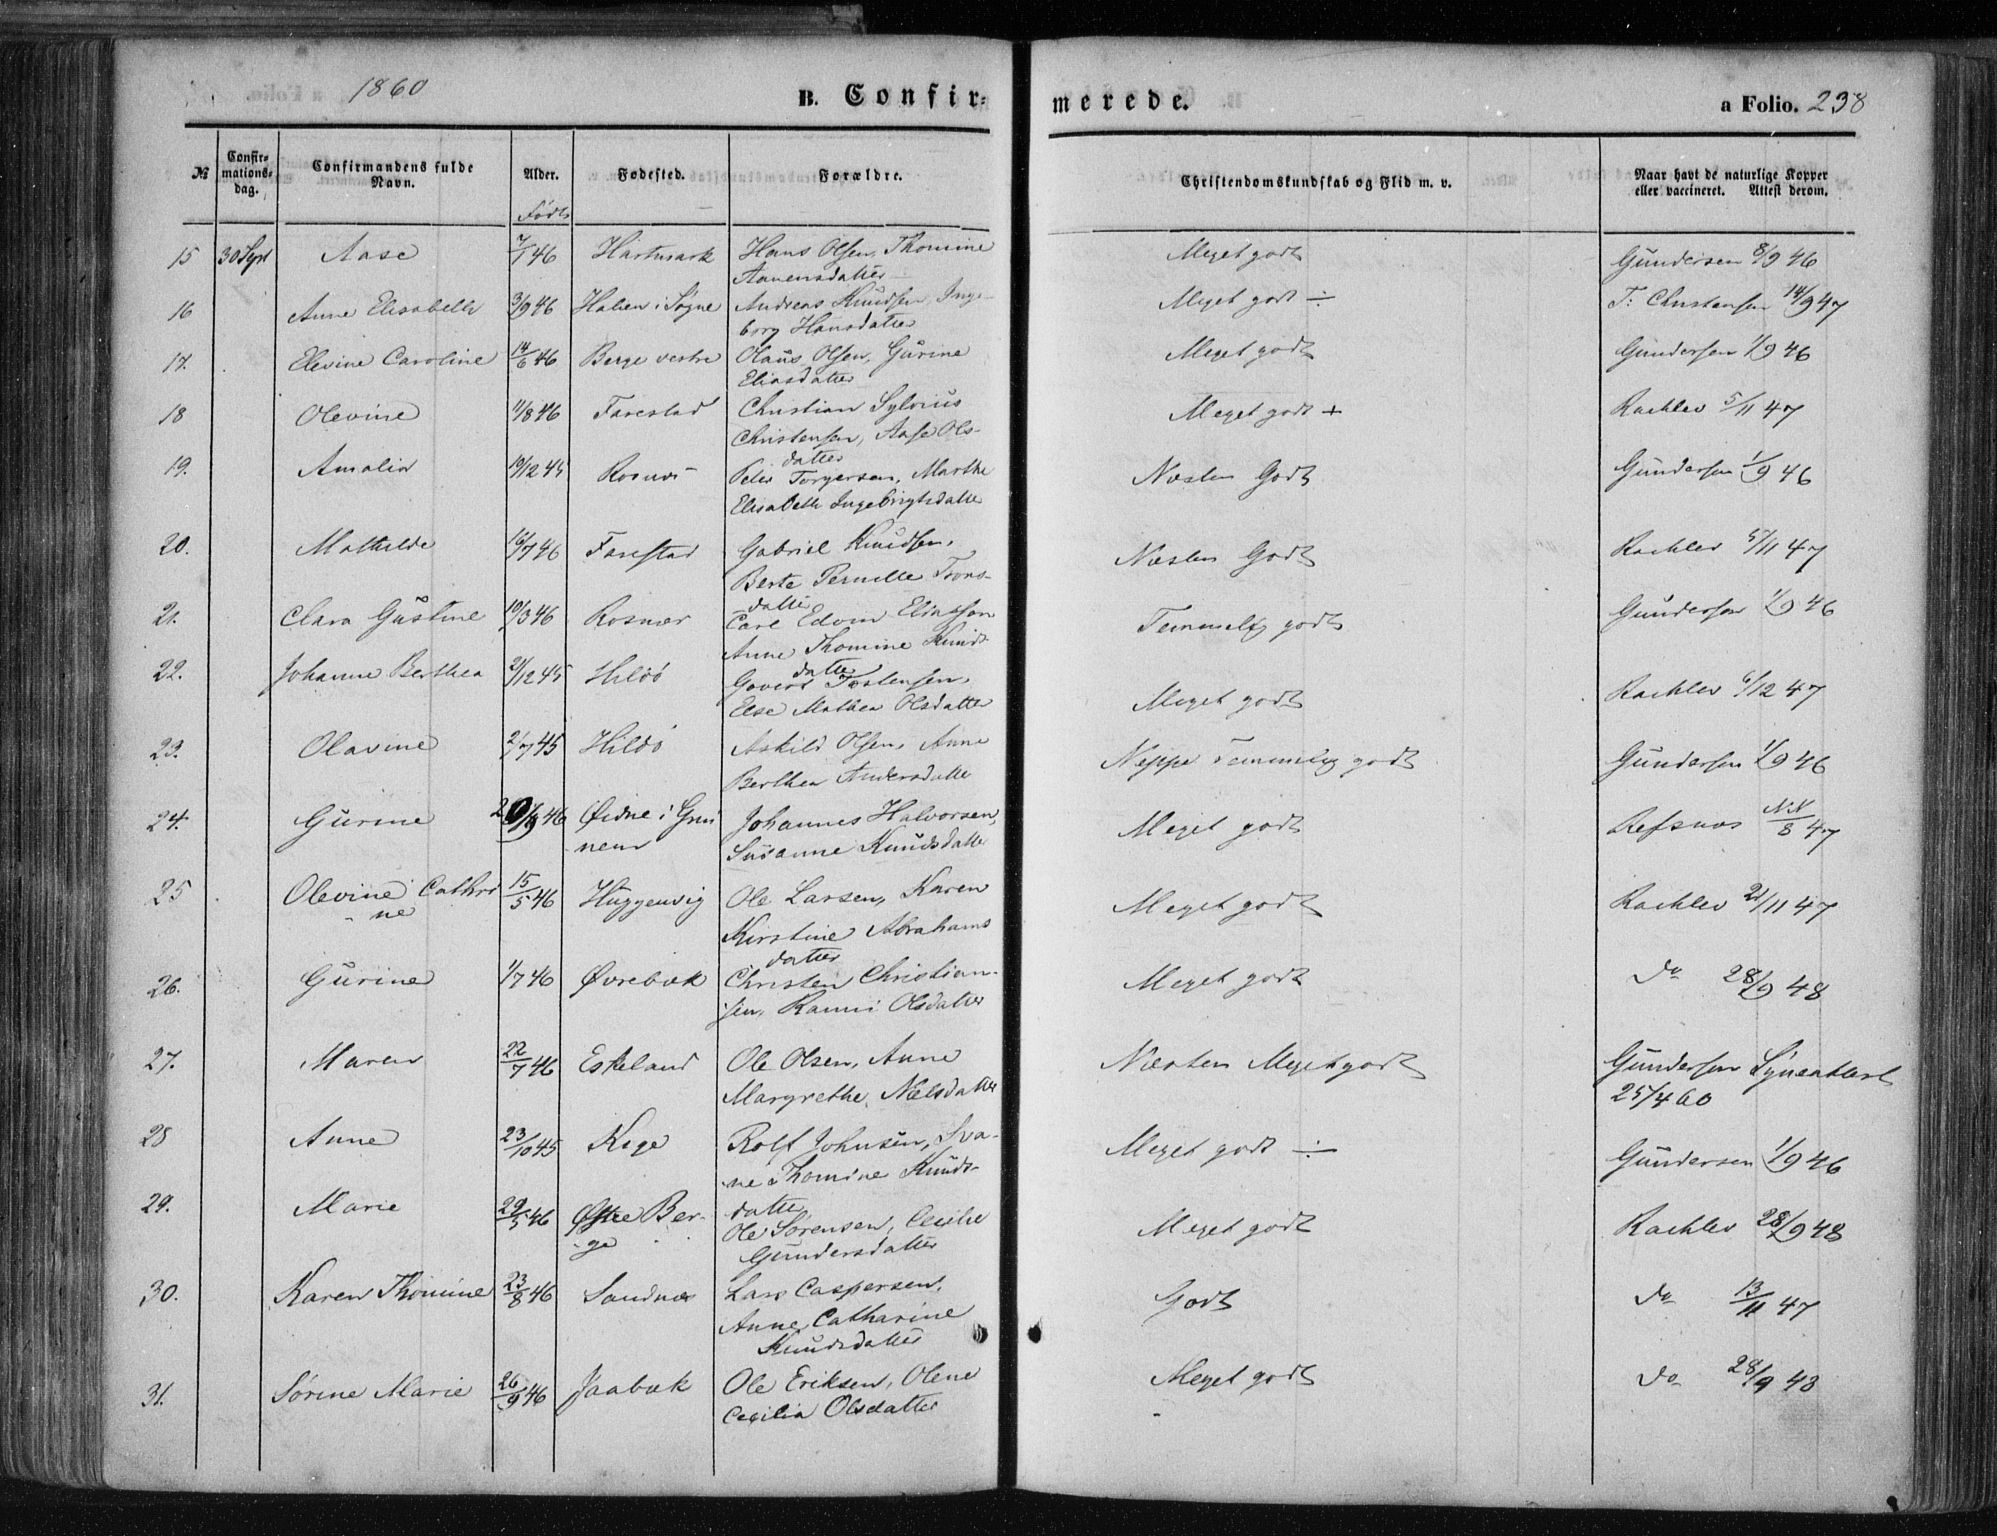 1860 B. Confir= merede. a Folio. 238
№ Confir=mations=dag. Confirmandens fulde Navn. Alder. Fødested. Forældre. Christendomskundskab og Flid m. v. Naar havt de naturlige Kopper eller vaccineret. Attest derom.
Født
15 30 Sept Aase 7/1 46 Hartmark Hans Olsen, Thomine Meget godt Gundersen 8/9 46
Aanensdatter
16 Anne Elisabeth 3/9 46 Holien i Søgne Andreas Knudsen, Inge- Meget godt ÷ T: Christensen 14/9 47
borg Hansdatter
17. Elevine Caroline 14/6 46 Berge vestre Olaus Olsen, Gurine Meget godt Gundersen 1/9 46
Eliasdatter
18 Olevine 11/8 46 Farestad Christian Sylvius Meget godt + Rachlev 5/11 47
Christensen, Aase Ols-
datter
19. Amalia 19/12 45 Rosnæs Peder Torgersen, Marthe Næsten Godt Gundersen 1/9 46
Elisabeth Ingebrigtsdatter
20. Mathilde 16/7 46 Farestad Gabriel Knudsen, Næsten Godt Rachlev 5/11 47
Berte Pernille Trons-
datter
21. Clara Gustine 10/3 46 Rosnæs Carl Edvin Eliassen Temmelig godt Gundersen 1/9 46
Anne Thomine Knuds-
datter
22. Johanne Berthea 21/12 45 Hildø Govert Tostensen, Meget godt Rachlev 6/12 47
Else Mathea Olsdatter
23. Olavine 2/7 45 Hildø Askild Olsen, Anne Neppe Temmelig godt Gundersen 1/9 46
Berthea Andersdatter
24. Gurine 46 Øidne i Grin Johannes Halvorsen, Meget godt Refsnes NN/8 47
nem Susanne Knudsdatter
25 Olevine Cathri 15/5 46 Huggenvig Ole Larsen, Karen Meget godt Rachlev 21/11 47
-ne Kirstine Abrahams
datter
26. Gurine 1/7 46 Øvrebæk Christen Christian- Meget godt Do 28/9 48
sen, Rannei Olsdatter
27. Maren 22/7 46 Eskeland Ole Olsen, Anne Næsten Meget godt Gundersen Synsattest
Margrethe Nilsdatter 25/4 60
28 Anne 23/10 45 Kige Rolf Johnsen, Sva- Meget godt ÷ Gundersen 1/9 46
ne Thomine Knuds-
datter
29. Marie 29/5 46 Østre Ber- Ole Sørensen, Cecilie Meget godt Rachlev 28/9 48
ge Gundersdatter
30. Karen Thomine 23/8 46 Sandnæs Lars Caspersen, Godt Do 13/11 47
Anne Catharine
Knudsdatter
31. Sørine Marie 26/9 46 Jaabæk Ole Eriksen, Olene Meget godt Do 28/9 48
Cecilia Olsdatter